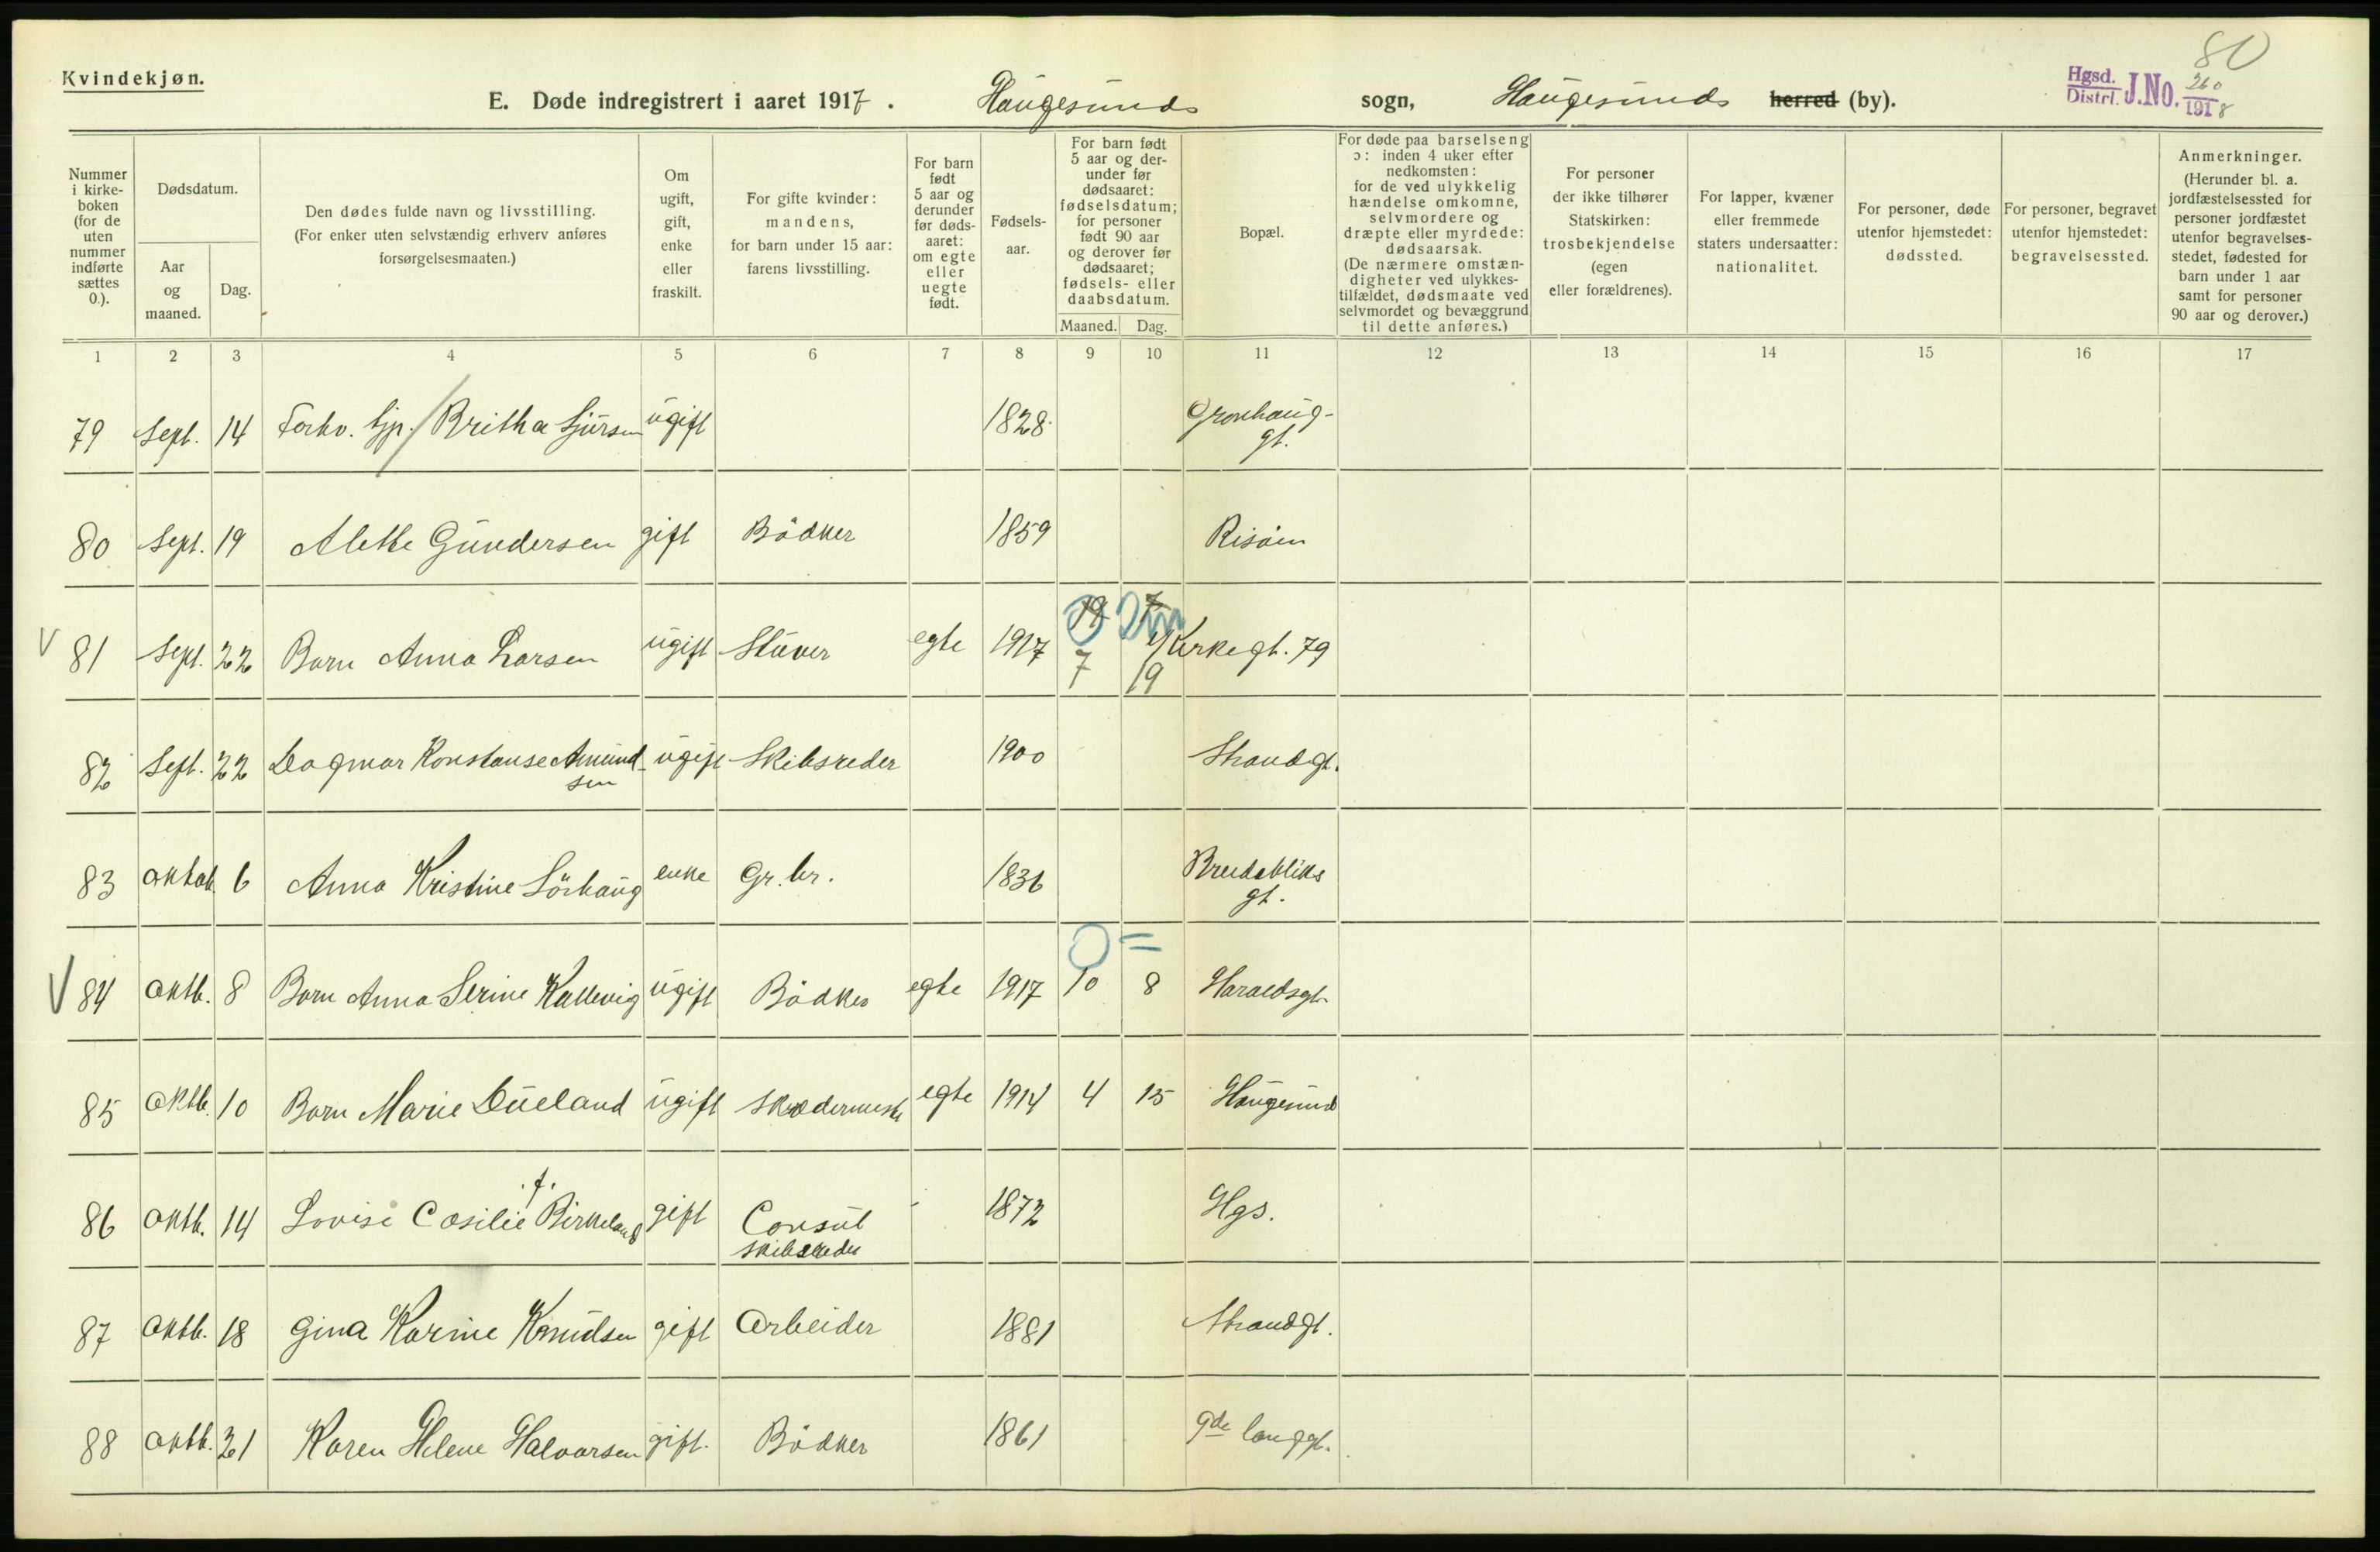 Kvindekjøn.
E. Døde indregistrert i aaret 1917. Haugesunds sogn, Haugesunds herred (by).
80
Hgsd. Distrl. J.No. 260 1918
Nummer i kirkeboken (for de uten nummer indførte sættes 0.).
Dødsdatum.
Aar og maaned.
Dag.
Den dødes fulde navn og livsstilling.
(For enker uten selvstændig erhverv anføres forsørgelsesmaaten.)
Om ugift, gift, enke eller fraskilt.
For gifte kvinder: mandens, for barn under 15 aar: farens livsstilling.
For barn født 5 aar og derunder før dødsaaret: om egte eller uegte født.
Fødselsaar.
For barn født 5 aar og derunder før dødsaaret: fødselsdatum; for personer født 90 aar og derover før dødsaaret; fødsels- eller daabsdatum.
Maaned. Dag.
Bopæl.
For døde paa barselseng ɔ: inden 4 uker efter nedkomsten: for de ved ulykkelig hændelse omkomne, selvmordere og dræpte eller myrdede: dødsaarsak. (De nærmere omstændigheter ved ulykkestilfældet, dødsmaate ved selvmordet og bevæggrund til dette anføres.)
For personer der ikke tilhører Statskirken: trosbekjendelse (egen eller forældrenes).
For lapper, kvæner eller fremmede staters undersaatter: nationalitet.
For personer, døde utenfor hjemstedet: dødssted.
For personer, begravet utenfor hjemstedet: begravelsessted.
Anmerkninger. (Herunder bl. a. jordfæstelsessted for personer jordfæstet utenfor begravelsesstedet, fødested for barn under 1 aar samt for personer 90 aar og derover.)
1 2 3 4 5 6 7 8 9 10 11 12 13 14 15 16 17
79 Sept. 14 Forhv. tjp. / Britha Sjursen ugift 1828 Grønhaug-
gt.
80 Sept. 19 Alette Gundersen gift Bödker 1859 Risöen
V 81 Sept. 22 Barn Anna Larsen ugift Stuver egte 1917 7 19 Kirkegt. 79
82 Sept. 22 Dagmar Konstanse Amund- ugift Skibsreder 1900 Strandgt.
sen
83 Oktob. 6 Anna Kristine Sörhaug enke Gr. br. 1836 Breidabliks
gt.
V 84 Oktb. 8 Barn Anna Serine Kallevig ugift Bödker egte 1917 10 8 Haraldsgt.
85 Oktb. 10 Barn Marie Dueland ugift Skrædermester egte 1914 4 15 Haugesund
86 Oktb. 14 Lovise Cæsilie f. Birkeland gift Consul 1872 Hgs.
Skibsreder
87 Oktb. 18 Gina Karine Knudsen gift Arbeider 1881 Strandgt.
88 Oktb. 21 Karen Helene Halvorsen gift. Bödker 1861 langgt.